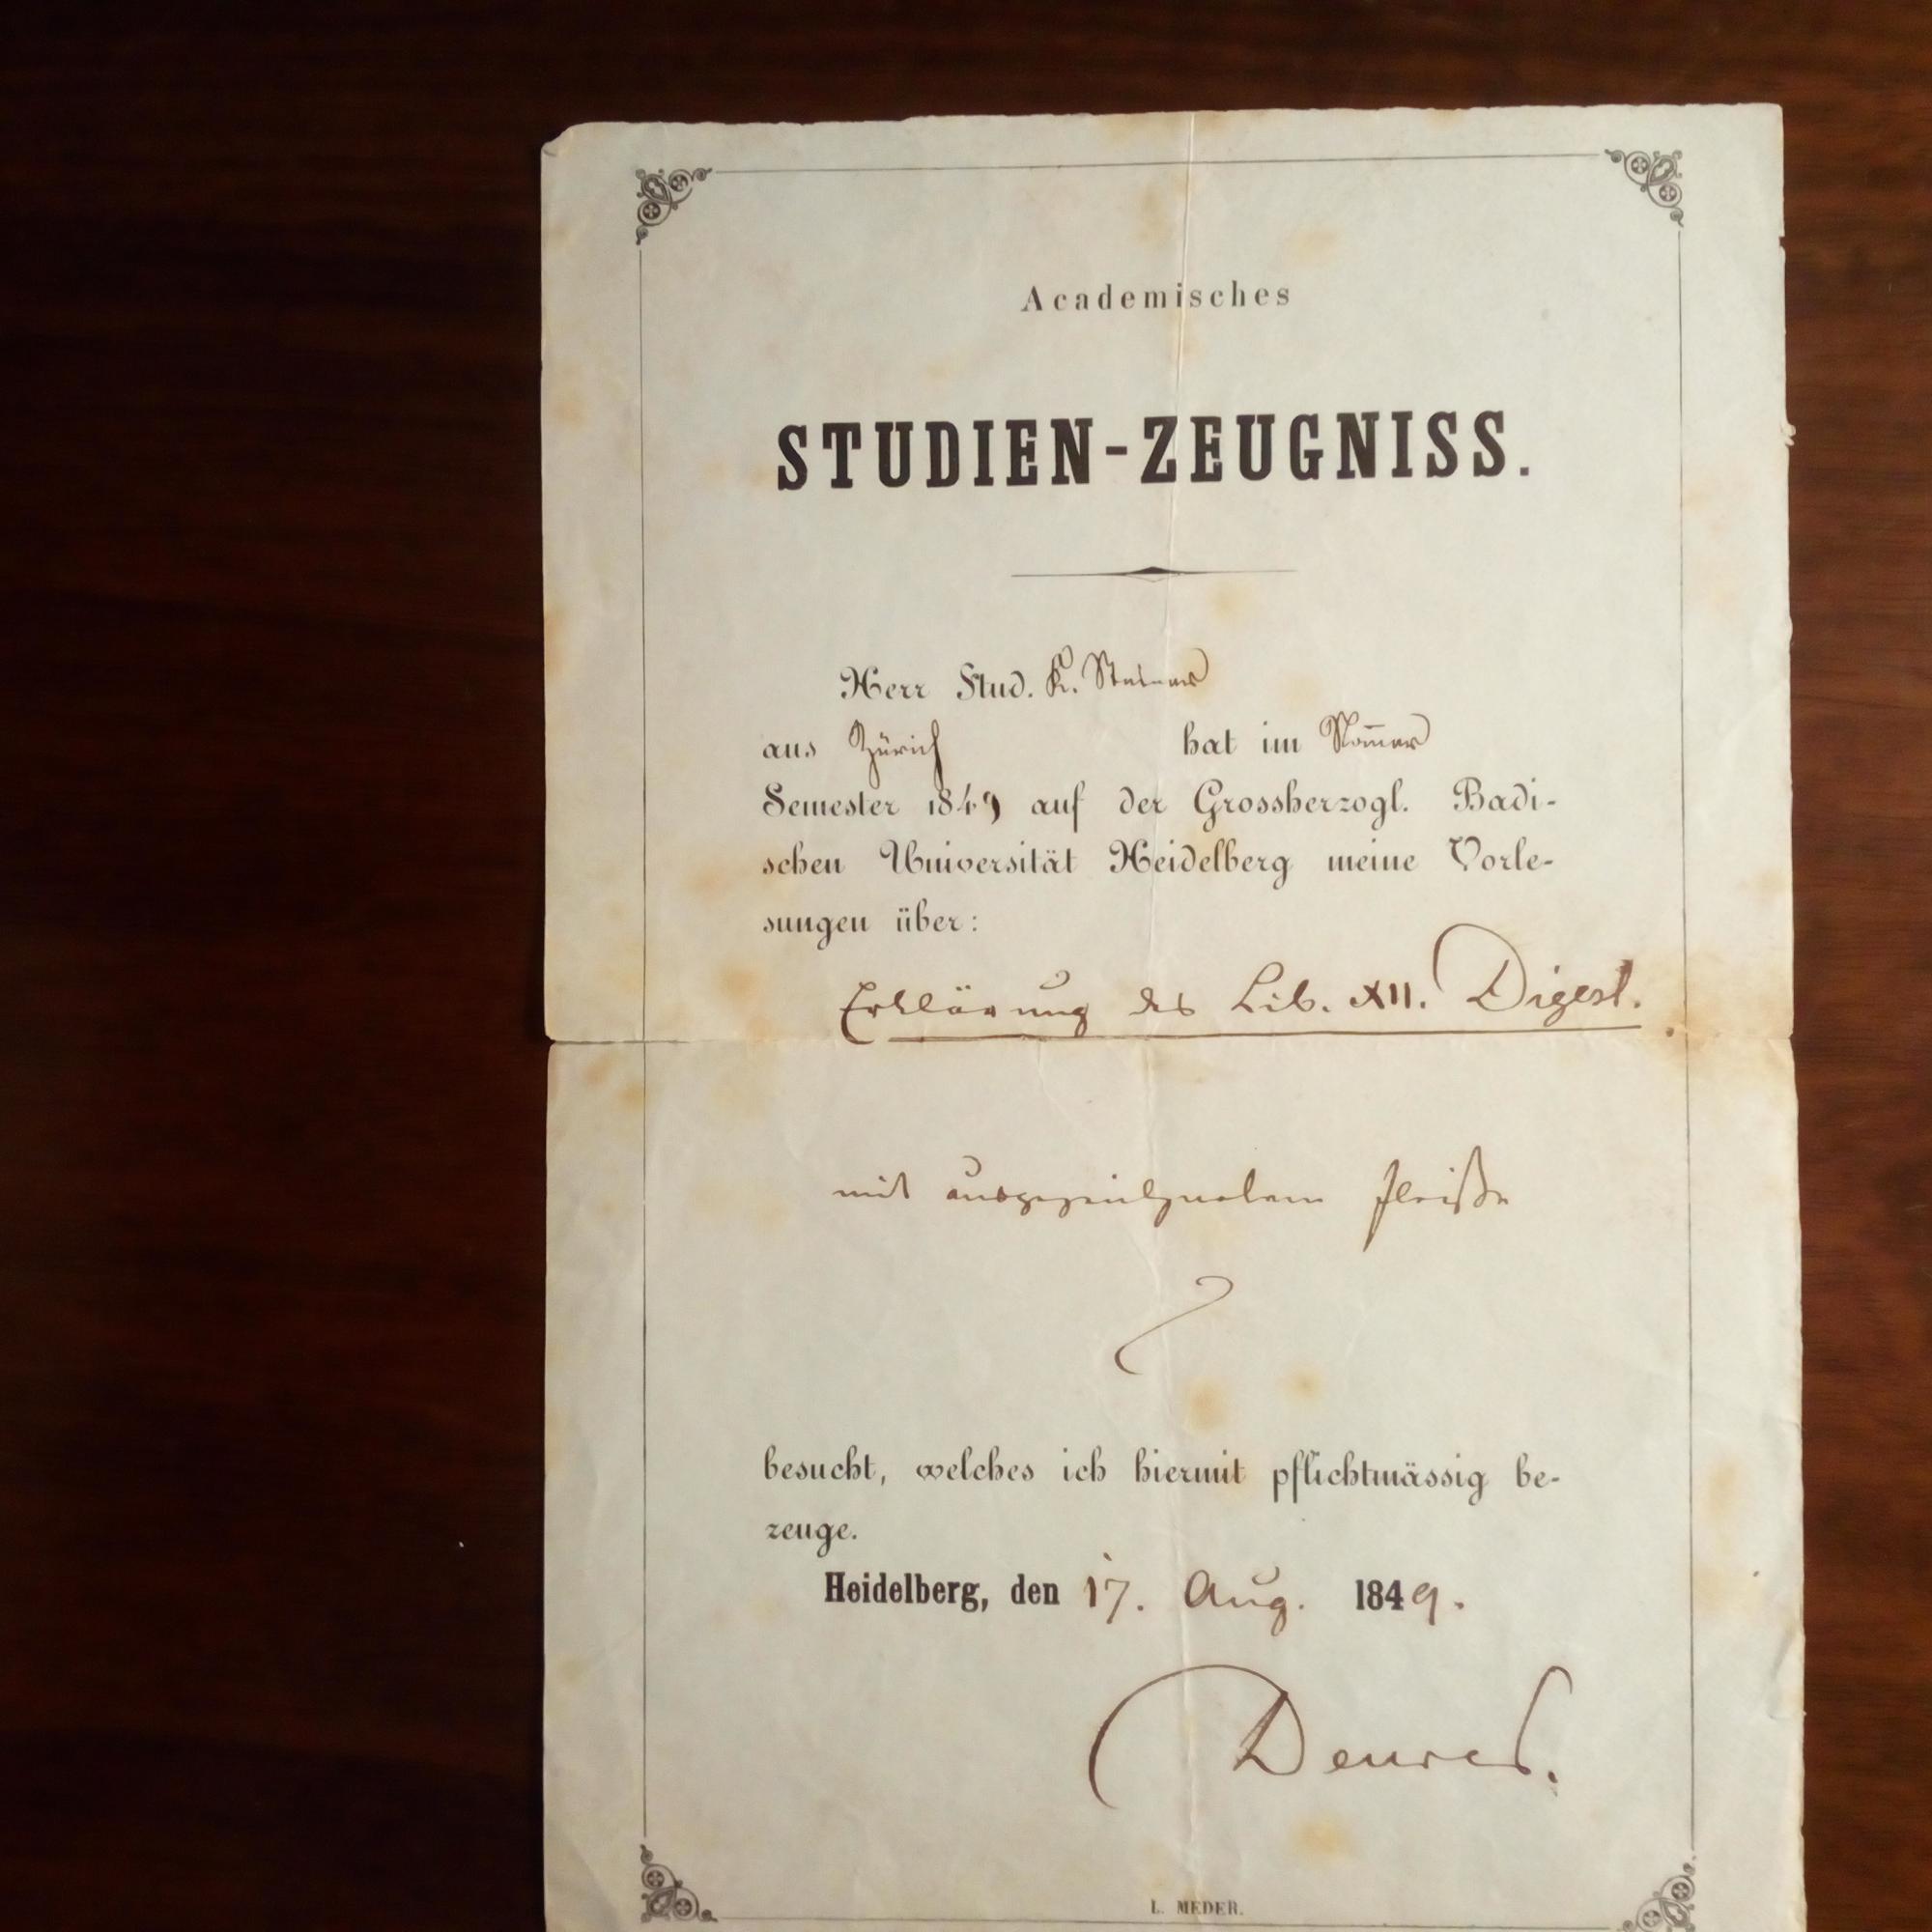 Academisches
STUDIEN-ZEUGNISS.
Herr Stud. K. Steiner
aus Zürich hat im Som̅er
Semester 1849 auf der Grossherzogl. Badi-
schen Universität Heidelberg meine Vorle-
sungen über:
Erklärung des Lib. XII. Digest.
mit ausgezeichnetem Fleiße
besucht, welches ich hiermit pflichtmässig be-
zeuge.
Heidelberg, den 17. Aug. 1849.
L. MEDER.